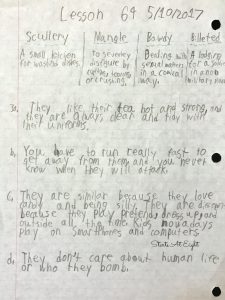 Lesson 64 5/10/2017
Scullery Mangle Bawdy Billeted
A small kitchen to severely Dealing with A lodging
for washing dishes. disfigure by sexual matters for a soldier
cutting, tearing in a comical in a non
or crushing. way. military
3a. They like their tea hot and strong, and
they are always clean and tidy with
their uniforms.
b. You have to run really fast to
get away from them, and you never
know when they will attack.
c. They are similar because they love
candy and being silly. They are different
because they play pretend, dress up, and
outside all the time. Kids nowadays
play on smartphones and computers
d. They don't care about human life
or who they bomb.